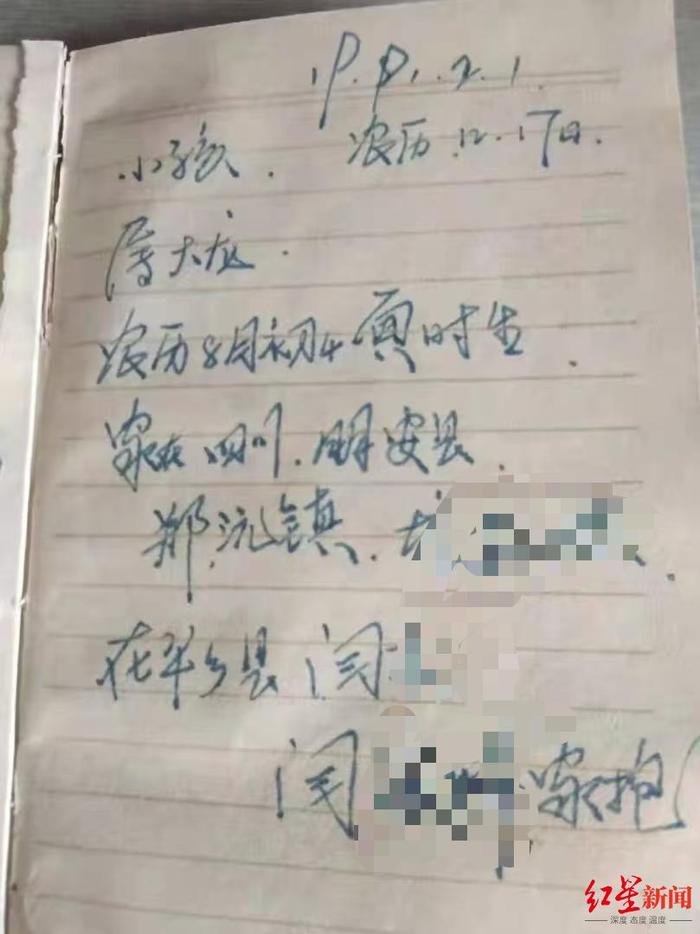 1991.2.1.
小孩. 农历.12.17日.
大龙.
农历8月初4寅时生.
家在四川.朋安县.
郑沅镇.
在平乡县 闫
闫 家抱
红星新闻
深度 态度 温度